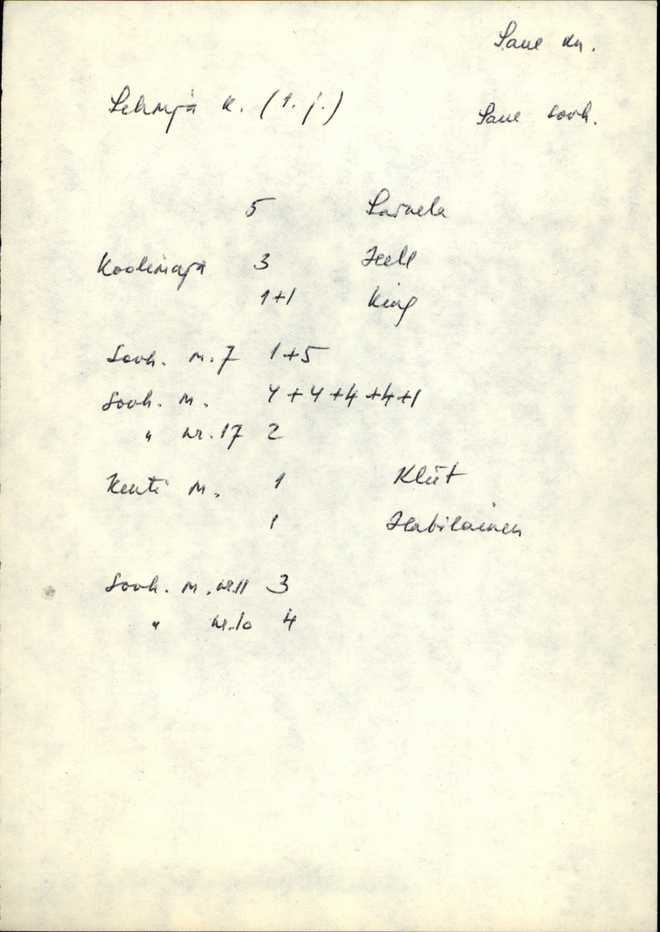 Saue kn.
Lehmja k. (1. j.)
Saue sovh.
5
Koolimaja 3
1+1 King
Sovh. m. 7 1+5
Sovh. m. 4+4+4+4+1
" nr. 17 2
Kenti m. 1 Kliit
1 Habilainen
Sovh. m. nr 11 3
" nr. 10 4